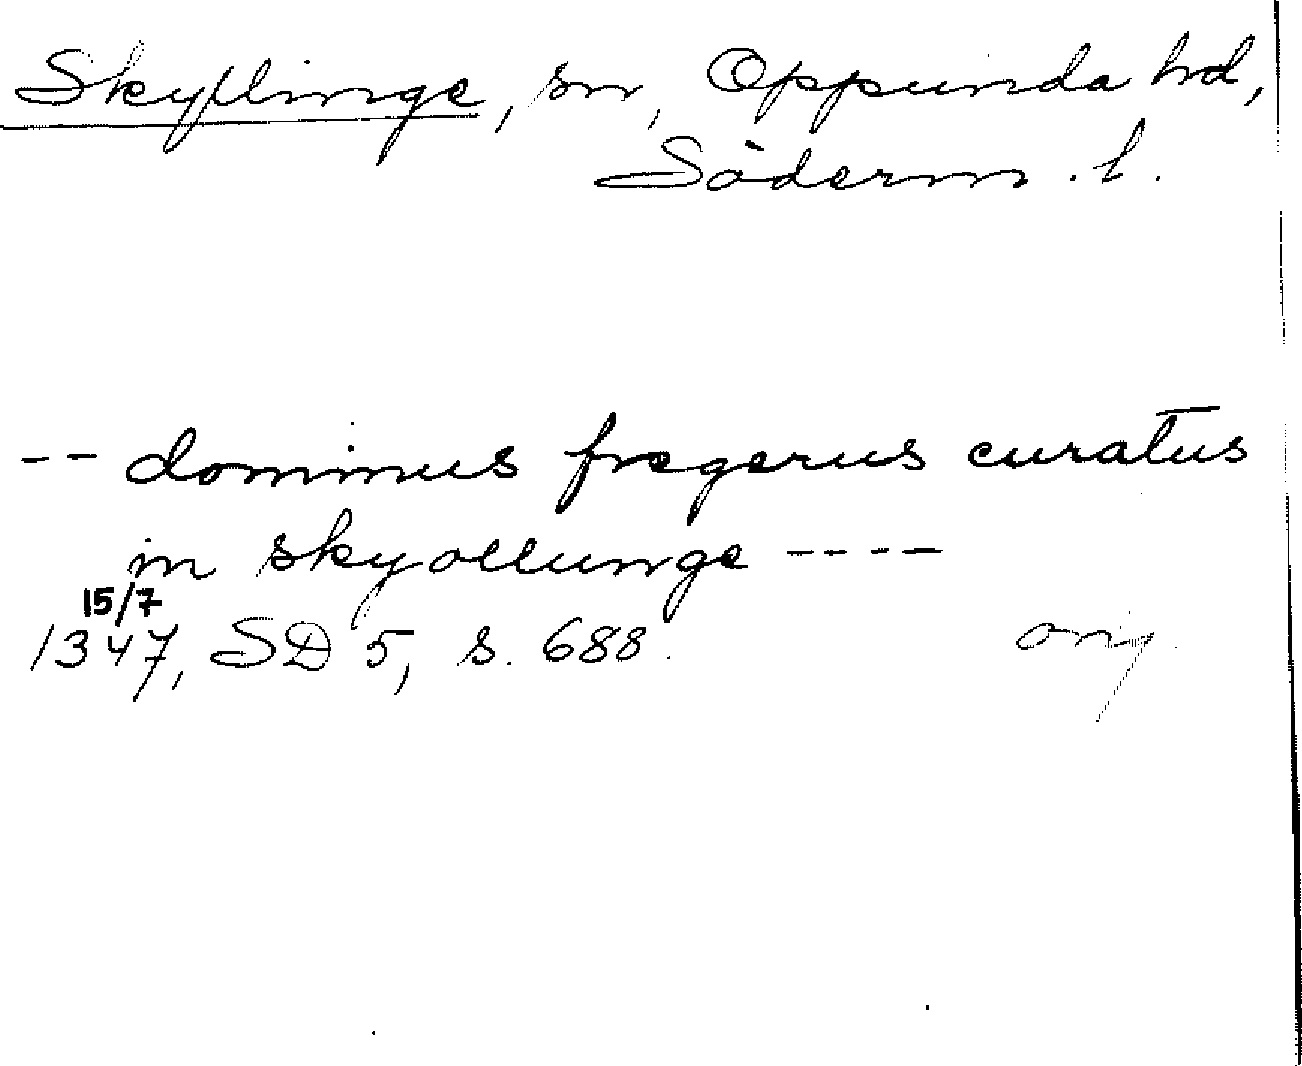 Skyllinge, sn, Oppunda hd,
Söderm. l.
-- dominus frægerus curatus
in skyællunge ----
15/7
1347, SD 5, s. 688.
orig.